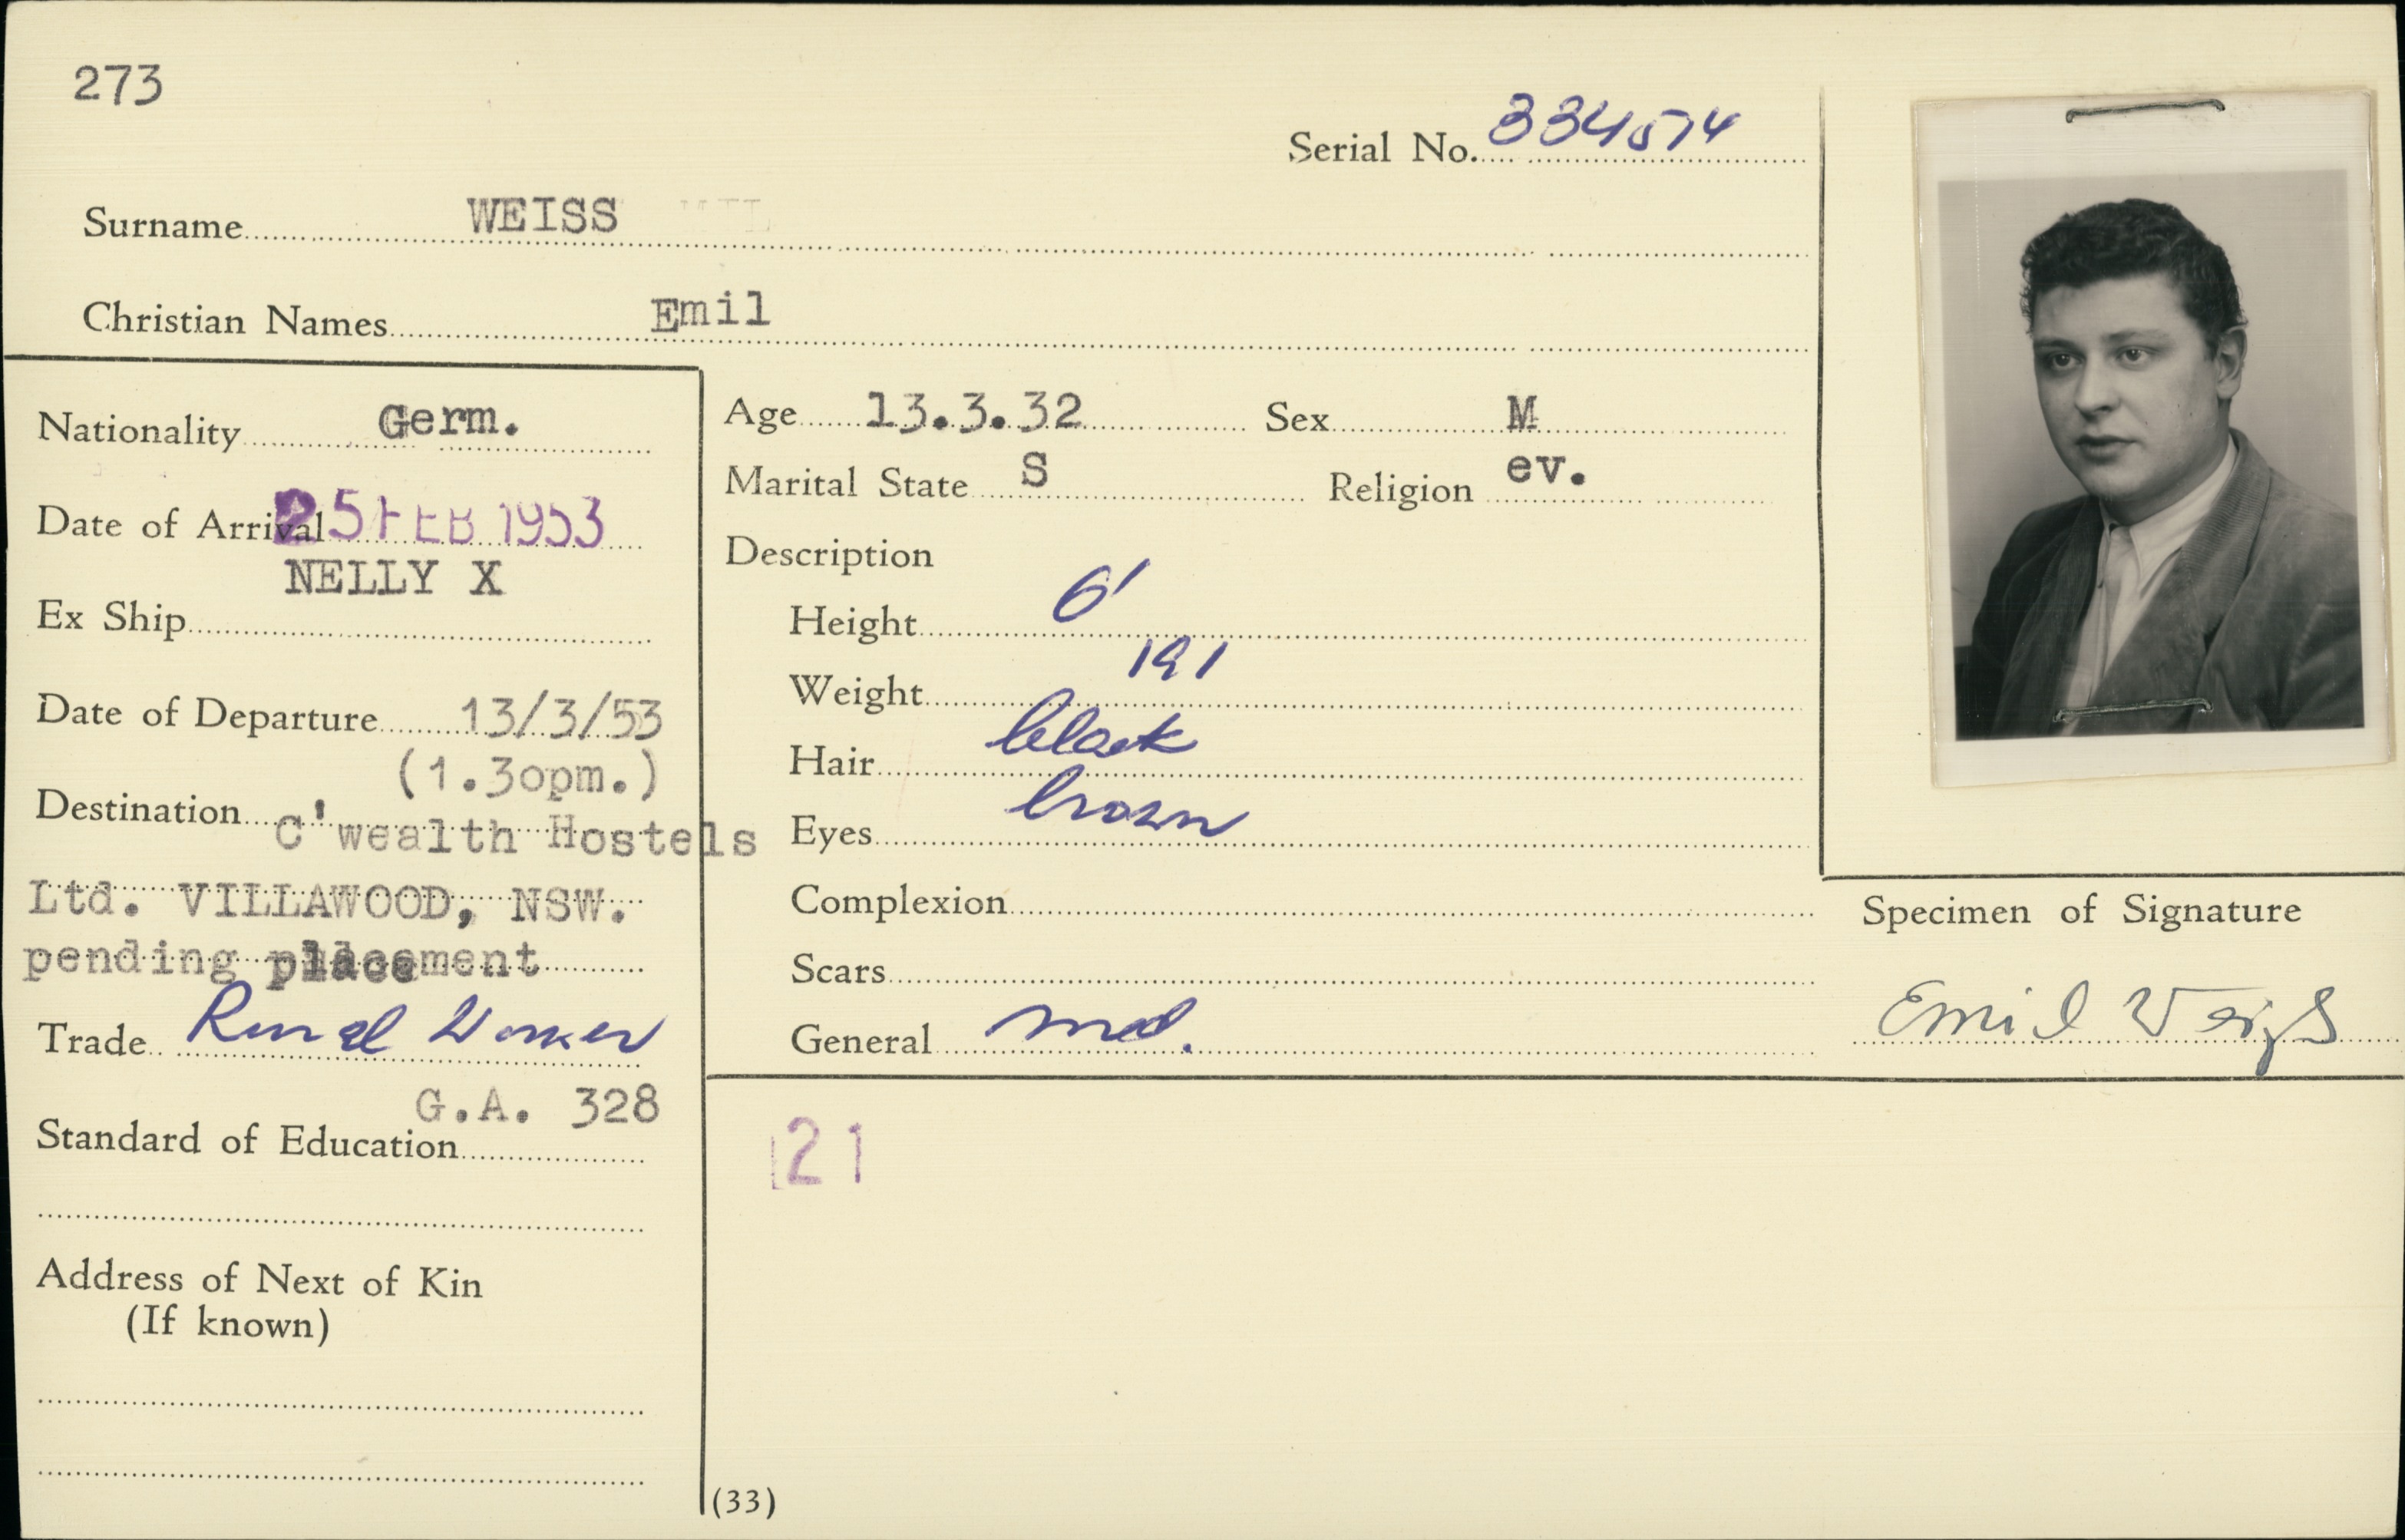 273
Serial No. 334574
Surname WEISS
Christian Names Emil
Nationality Germ.
Date of Arrival 25 FEB 1953
NELLY X
Ex Ship
Date of Departure 13/3/53
(1.3opm.)
Destination C'wealth Hostels
Ltd. VILLAWOOD, NSW.
pending placement
Trade Rural Worker
G.A. 328
Standard of Education
Address of Next of Kin
(If known)
Age 13.3.32 Sex M
Marital State S Religion ev.
Description
Height 6'
Weight 191
Hair black
Eyes brown
Complexion
Scars
General med.
Specimen of Signature
Emil Weiß
121
(33)